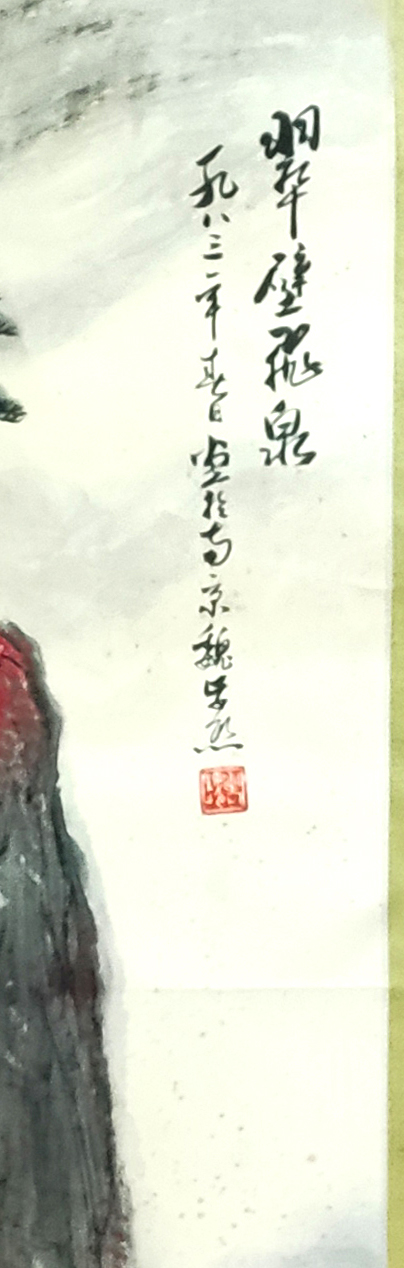 翠壁飛泉
一九八三年春日画於南京魏紫熙